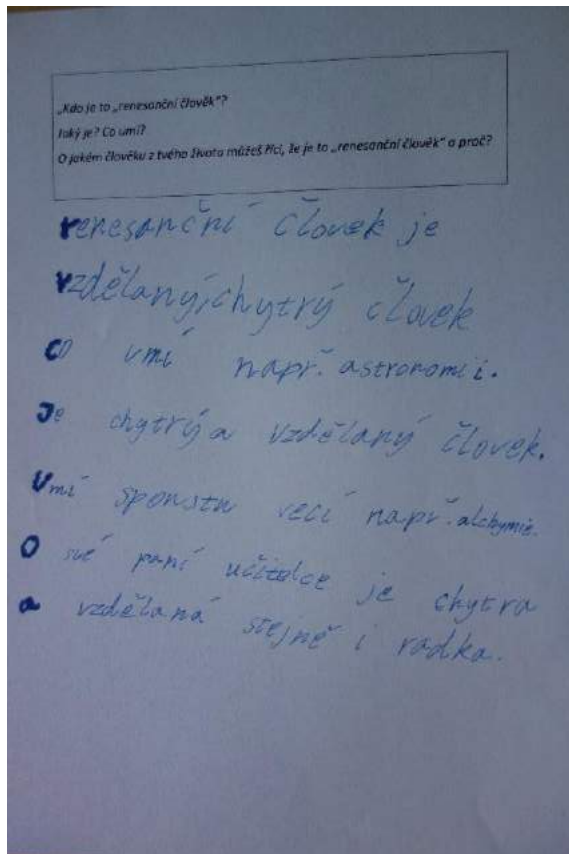 „Kdo je to „renesanční člověk"?
Jaký je? Co umí?
O jakém člověku z tvého života můžeš říci, že je to „renesanční člověk" a proč?
renesanční človek je
vzdělaný,chytrý človek
co umí např. astronomii.
Je chytrý a vzdělaný človek.
Umí sponstu vecí např. alchymie.
O své paní učitelce je chytra
a vzdělaná stejně i radka.